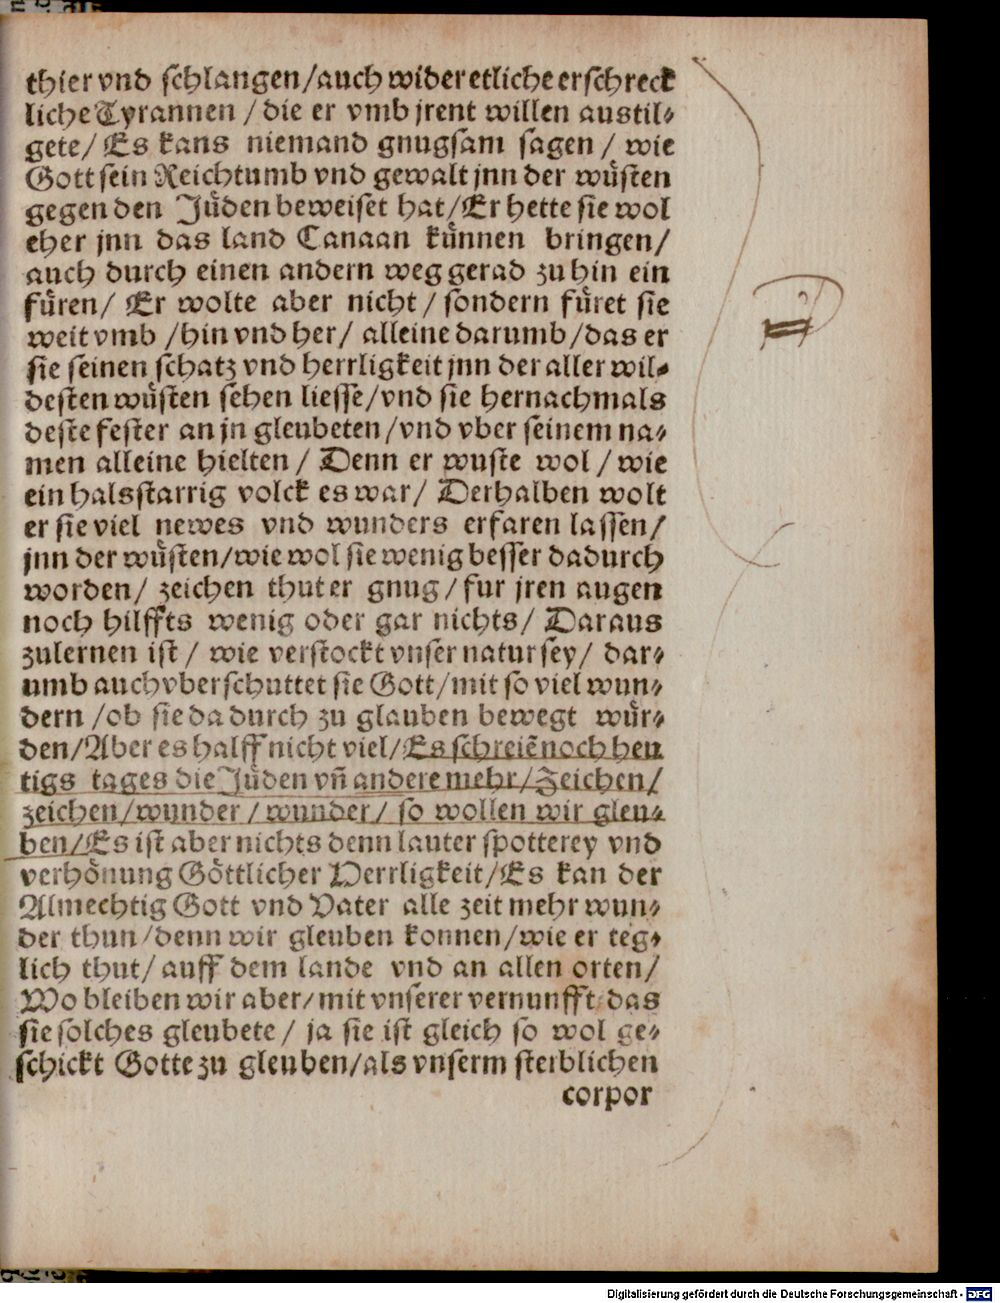 thier vnd schlangen/auch wider etliche erschreck
liche Tyrannen /die er vmb jrent willen austil⸗
gete/ Es kans niemand gnugsam sagen / wie
Gott sein Reichtumb vnd gewalt jnn der wüsten
gegen den Jüden beweiset hat/Er hette sie wol
eher jnn das land Canaan künnen bringen/
auch durch einen andern weg gerad zu hin ein
füren/ Er wolte aber nicht / sondern füret sie
weit vmb /hin vnd her/ alleine darumb/das er
sie seinen schatz vnd herrligkeit jnn der aller wil⸗
desten wüsten sehen liesse/vnd sie hernachmals
deste fester an jn gleubeten/vnd vber seinem na⸗
men alleine hielten / Denn er wuste wol / wie
ein halsstarrig volck es war/ Derhalben wolt
er sie viel newes vnd wunders erfaren lassen/
jnn der wüsten/wie wol sie wenig besser dadurch
worden/ zeichen thut er gnug/fur jren augen
noch hilffts wenig oder gar nichts/ Daraus
zulernen ist / wie verstockt vnser natur sey/ dar⸗
umb auch vberschuttet sie Gott/mit so viel wun⸗
dern /ob sie da durch zu glauben bewegt wür⸗
den/Aber es halff nicht viel/Es schreiē noch heu
tigs tages die Jüden vñ andere mehr/Zeichen/
zeichen/wunder / wunder/ so wollen wir gleu⸗
ben/Es ist aber nichts denn lauter spotterey vnd
verhönung Göttlicher Herrligkeit/Es kan der
Almechtig Gott vnd Vater alle zeit mehr wun⸗
der thun/denn wir gleuben konnen/wie er teg⸗
lich thut/ auff dem lande vnd an allen orten/
Wo bleiben wir aber/mit vnserer vernunfft das
sie solches gleubete / ja sie ist gleich so wol ge⸗
schickt Gotte zu gleuben/als vnserm sterblichen
corpor
Digitalisierung gefördert durch die Deutsche Forschungsgemeinschaft - DFG